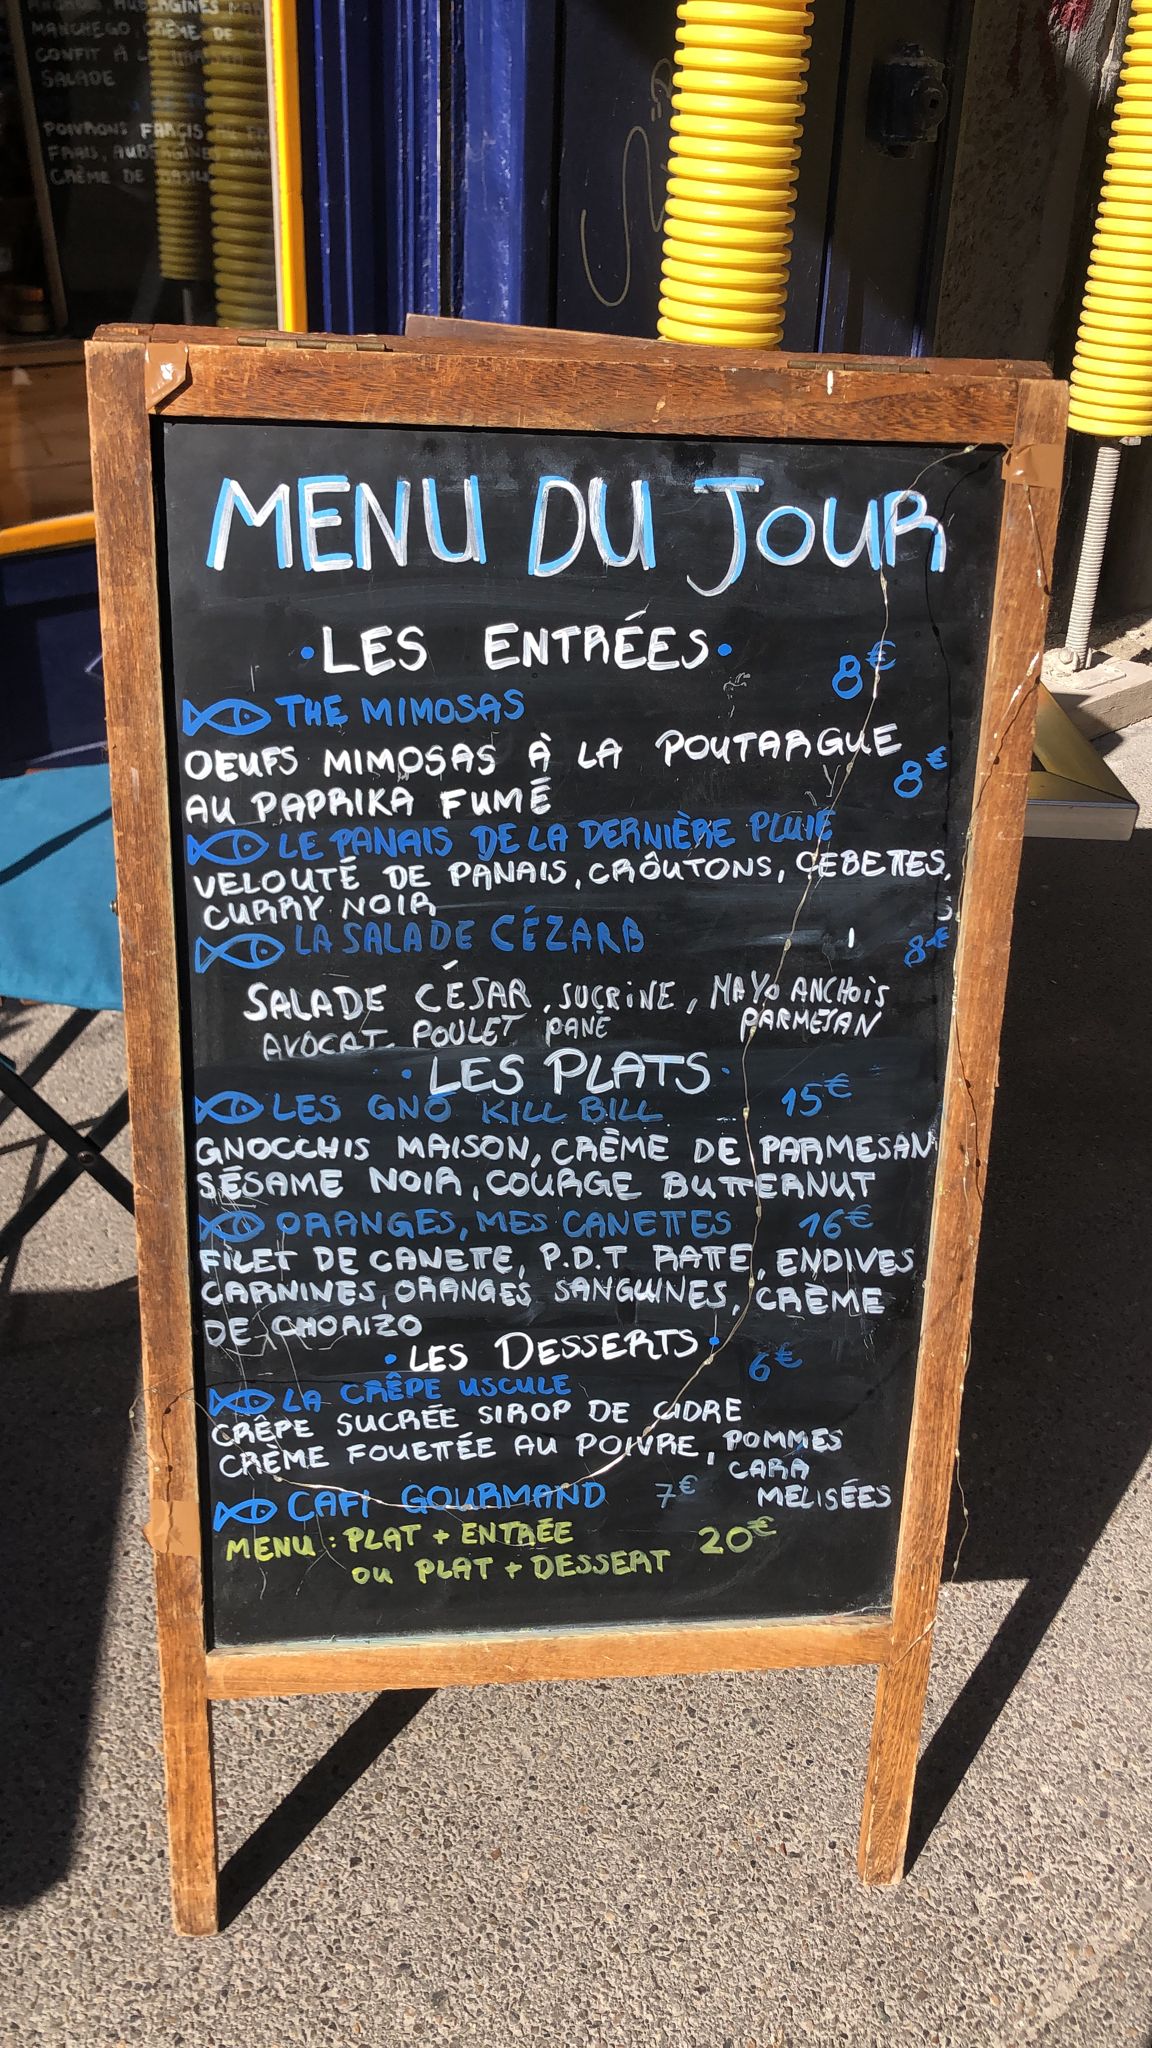 MANCHEGO, CRÈME DE
CONFIT À
SALADE
POIVRONS FARCIS
FRAIS, AUBERGINES
CRÈME DE BASILIC
MENU DU JOUR
• LES ENTRÉES •
THE MIMOSAS 8€
OEUFS MIMOSAS À LA POUTARGUE
AU PAPRIKA FUMÉ 8€
LE PANAIS DE LA DERNIÈRE PLUIE
VELOUTÉ DE PANAIS, CROÛTONS, CEBETTES,
CURRY NOIR
LA SALADE CÉZARB 8€
SALADE CÉSAR, SUCRINE, MAYO ANCHOIS
AVOCAT POULET PANÉ PARMESAN
• LES PLATS •
LES GNÔ KILL BILL 15€
GNOCCHIS MAISON, CRÈME DE PARMESAN
SÉSAME NOIR, COURGE BUTTERNUT
ORANGES, MES CANETTES 16€
FILET DE CANETTE, P.D.T RATTE, ENDIVES
CARNINES, ORANGES SANGUINES, CRÈME
DE CHORIZO
• LES DESSERTS •
LA CRÊPE USCULE 6€
CRÊPE SUCRÉE SIROP DE CIDRE
CRÈME FOUETTÉE AU POIVRE, POMMES
CARA
MELISÉES
CAFI GOURMAND 7€
MENU : PLAT + ENTRÉE 20€
OU PLAT + DESSERT